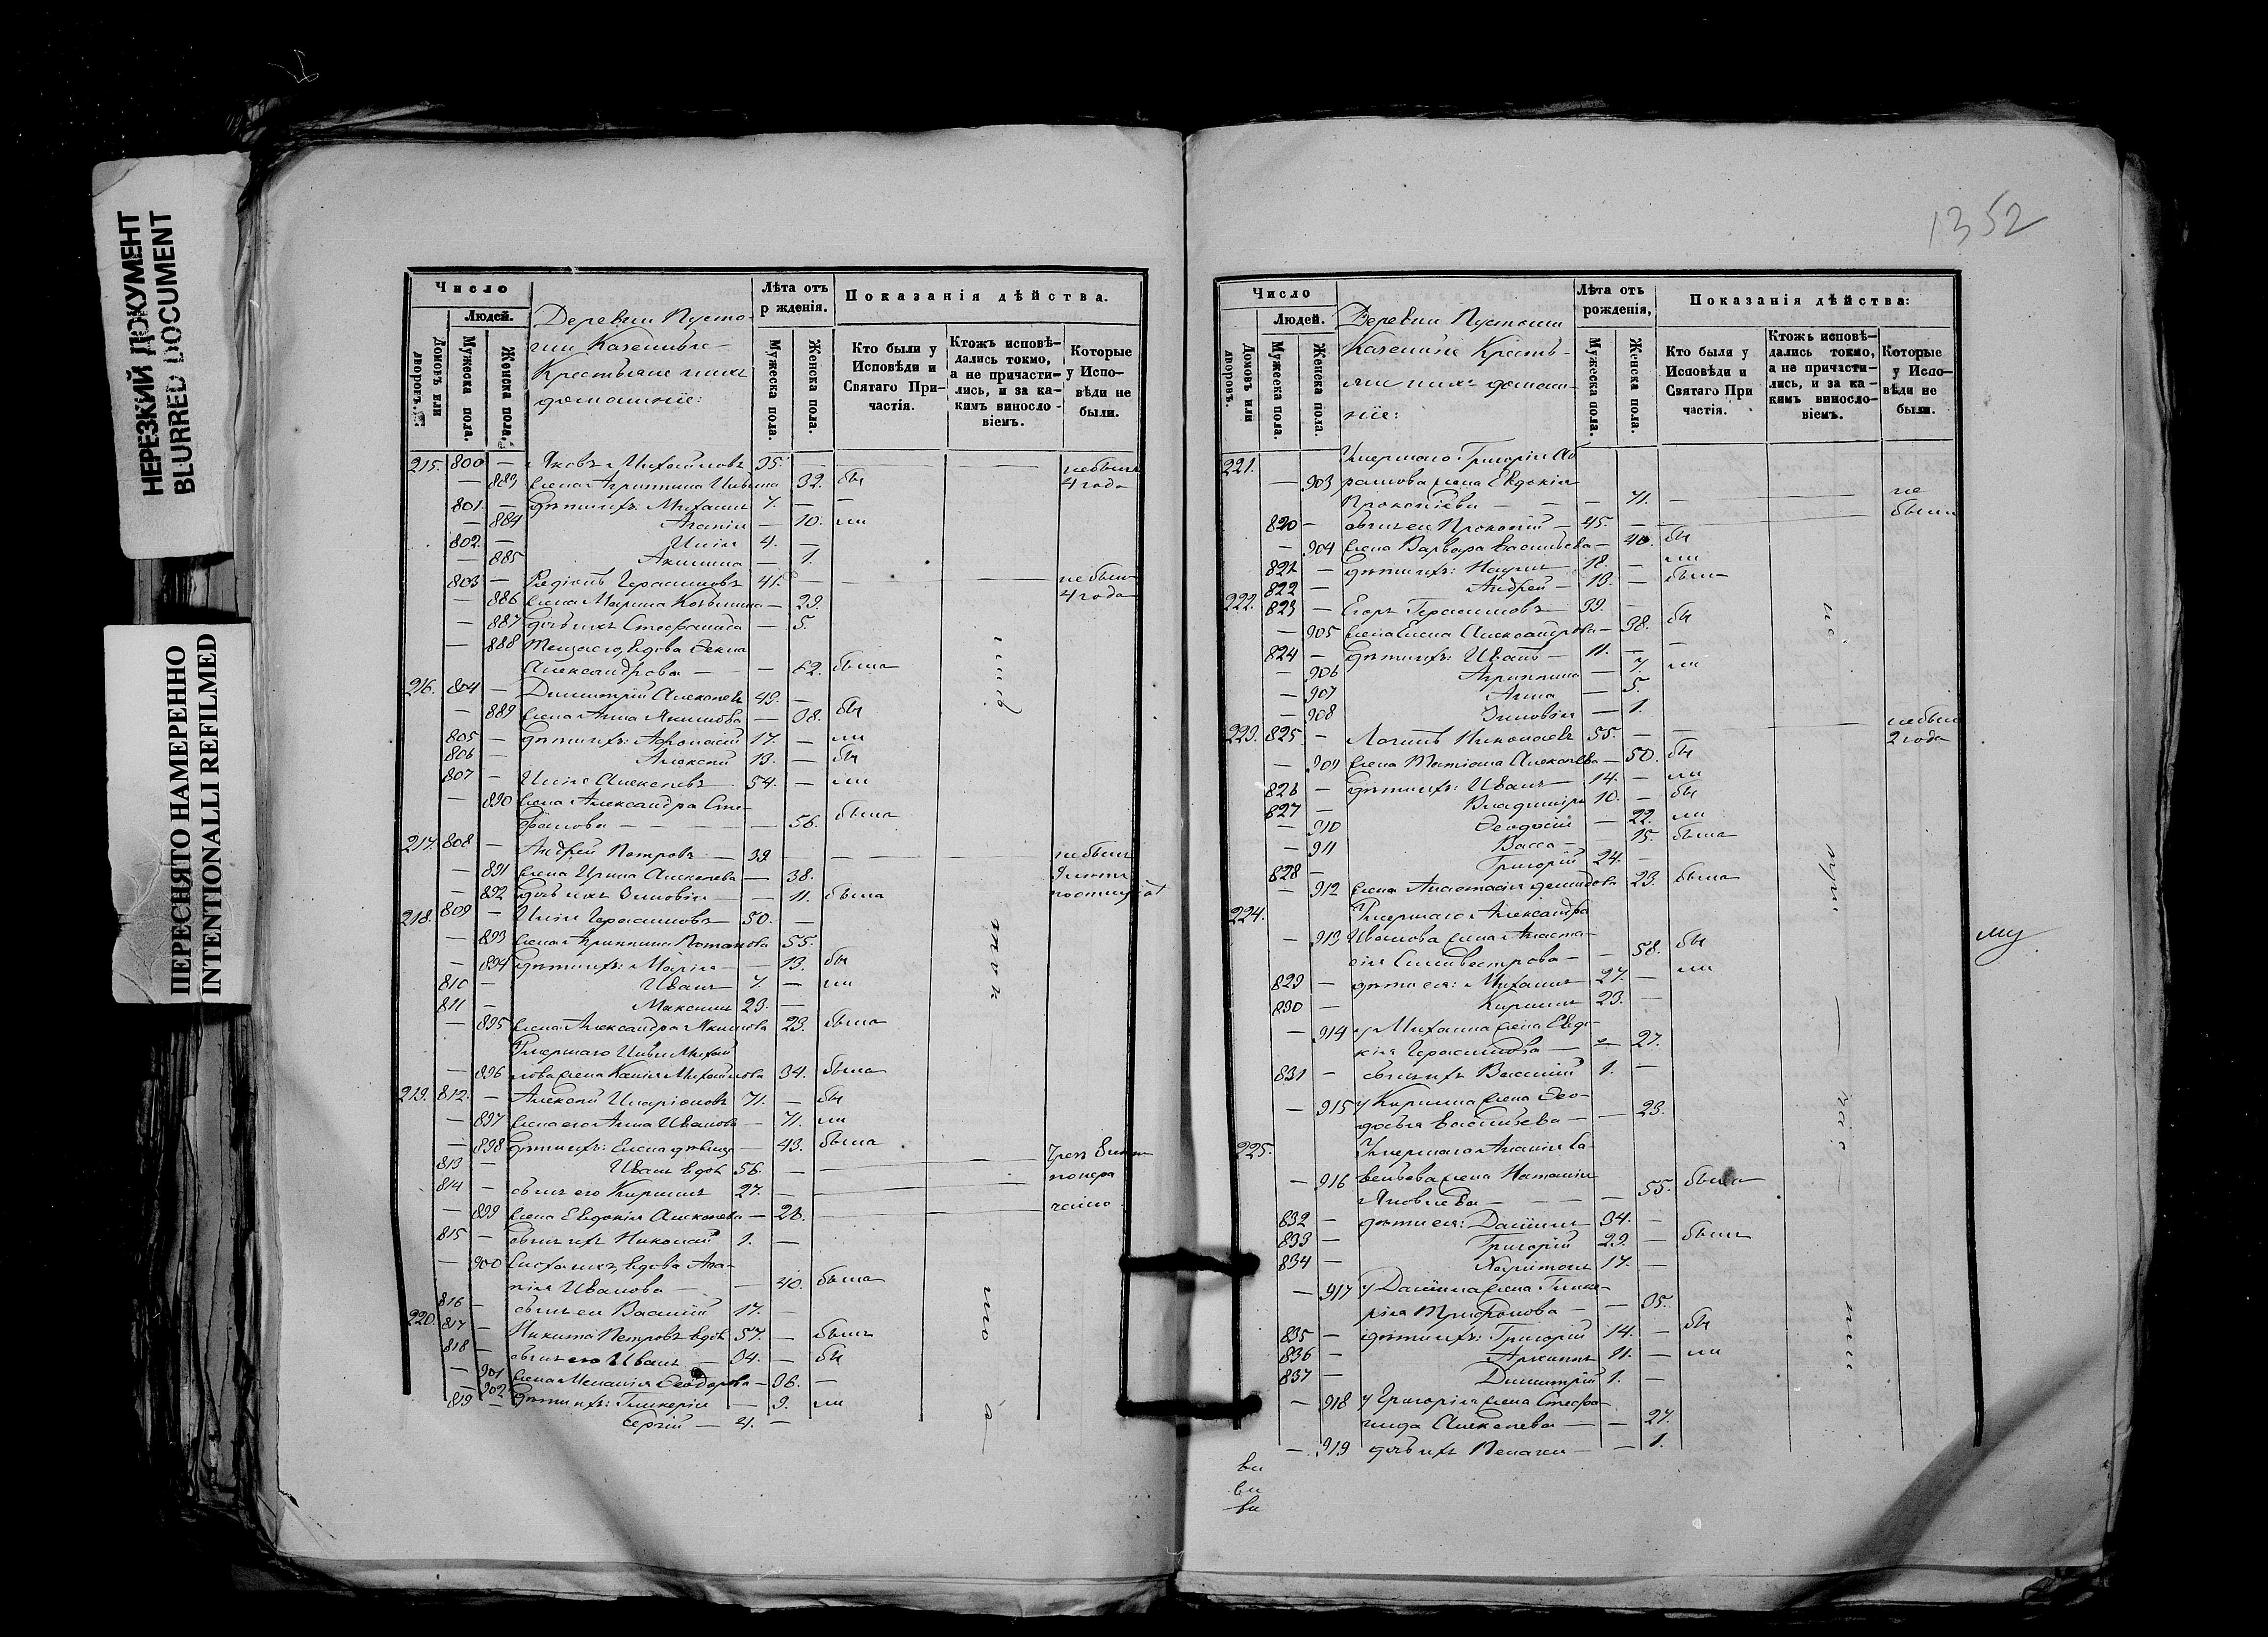 НЕРЕЗКИЙ ДОКУМЕНТ
BLURRED DOCUMENT
ПЕРЕСНЯТО НАМЕРЕННО
INTENTIONALLI REFILMED
Число
Людей.
Домовъ или дворовъ.
Мужеска пола.
Женска пола.
Деревни Пусто-
Крестьяне и ихъ
домашнiе:
Лѣта отъ
р жденiя.
Мужеска пола.
Женска пола.
Показанiя дѣйства.
Кто были у
Исповѣди и
Святаго При-
частiя.
Ктожъ исповѣ-
дались токмо,
а не причасти-
лись, и за ка-
кимъ винosло-
вiемъ.
Которые
у Испо-
вѣди не
были.
215. 800 — Яковъ Михайловъ 35. — небылъ
— 883 Жена Агриппина 32. бы 4 года
801. — Дѣти ихъ: Михаилъ 7. —
— 884 Агапiя — 10. ли
802. — Илiя 4. —
— 885 Акилина — 1.
803 — Герасимовъ 41. — не былъ
— 886 Жена Марина — 29. 4 года
— 887 дочь ихъ Стефанида — 5.
— 888 вдова Фекла
Александрова — — 62. была
216. 804 — Димитрiй Алексѣевъ 43. —
— 889 Жена Анна Якимова — 38. бы
805 — Дѣти ихъ: Афанасiй 17. — ли
806 — Алексѣй 13. — бы
807 — Илiя Алексѣевъ 54. — ли
— 890 Жена Александра Сте-
фанова — — 56. была
217. 808 — Андрей Петровъ — 39 — небылъ
— 891 Жена Ирина Алексѣева — 38.
— 892 дочь ихъ Зиновiя — — 11. была
218. 809 — Илiя Герасимовъ 50. —
— 893 Жена Агриппина Потапова 55.
— 894 Дѣти ихъ: Марiя — — 13. бы
810 — Иванъ 7. — ли
811 — Максимъ 23. —
— 895 Жена Александра Якимова 23. была
Умершаго
— 896 Жена Михайлова 34. была
219. 812. — Алексѣй Иларiоновъ 71. — бы
— 897 Жена его Анна Иванова — 71. ли
— 898 Дѣти ихъ: Елена дѣвица — 43. была
813 — Иванъ вдов 56. —
814 — сынъ его Кириллъ 27. —
— 899 Жена Евдокiя Алексѣева — 28.
815 — сынъ ихъ Николай 1. —
— 900 Сноха ихъ, вдова Ага-
пiя Иванова — — 40. была
816 — сынъ ея Василiй 17. —
220. 817 — Никита Петровъ вдов 57. — былъ
818 — сынъ его Иванъ — 34. — бы
— 901 Жена Меланiя Феодорова — 36. —
— 902 Дѣти ихъ: Гликерiя — 9. ли
819 — Сергiй — 4. —
1352
Число
Людей.
Домовъ или дворовъ.
Мужеска пола.
Женска пола.
Деревни Пустоши
Казенные Кресть-
яне и ихъ домаш-
нiе:
Лѣта отъ
рожденiя,
Мужеска пола.
Женска пола.
Показанiя дѣйства:
Кто были у
Исповѣди и
Святаго При
частiя.
Ктожъ исповѣ-
дались токмо,
а не причасти-
лись, и за ка-
кимъ винosло-
вiемъ.
Которые
у Испо-
вѣди не
были.
221. Умершаго Григорiя Аб
— 903 рамова жена Евдокiя
Прокопiева — — 71. — не
820 — сынъ ея Прокопiй — 45. — были
— 904 Жена Варвара Васильева — 40. бы
821 — Дѣти ихъ: 18. — ли
822 — Андрей — 13. — былъ
222. 823 — Егоръ Герасимовъ 39. —
— 905 Жена Елена Александрова — 38. бы
824 — Дѣти ихъ: Иванъ — 11. — —
— 906 Агриппина — 7. ли
— 907 Анна — 5.
— 908 Зиновiя — 1.
223. 825 — Логинъ Николаевъ 55. — небылъ
— 909 Жена Татiана Алексѣева — 50. бы 2 года
826 — Дѣти ихъ: Иванъ — 14. — ли
827 — Владимiръ 10. — бы
— 910 Феодосiя — 22. ли
— 911 Васса — 15. была
828 — Григорiй 24. —
— 912 Жена Анастасiя Демидова 23. была
224. Умершаго Александра
— 913 Иванова жена Анаста-
сiя Силивестрова — — 58. бы
829 — Дѣти ея: Михаилъ 27. — ли
830 — Кириллъ 23. —
— 914 у Михаила жена Евдо-
кiя Герасимова — — 27.
831 — сынъ ихъ Василiй 1. —
— 915 у Кирилла жена Фео-
досья Васильева — — 23.
225. Умершаго Ананiи Са-
— 916 вельева жена Наталiя
Яковлева — — — 55. была
832 — дѣти ея: Данiилъ 34. —
833 — Григорiй 29. — были
834 — Харитонъ 17. —
— 917 у Данiила жена Глике-
рiя Трифонова — — 35.
835 — Дѣти ихъ: Григорiй 14. — бы
836 — 11. — ли
837 — Димитрiй 1. —
— 918 у Григорiя жена Стефа-
нида Алексѣева — — 27.
— 919 дочь ихъ Пелагея — — 1.